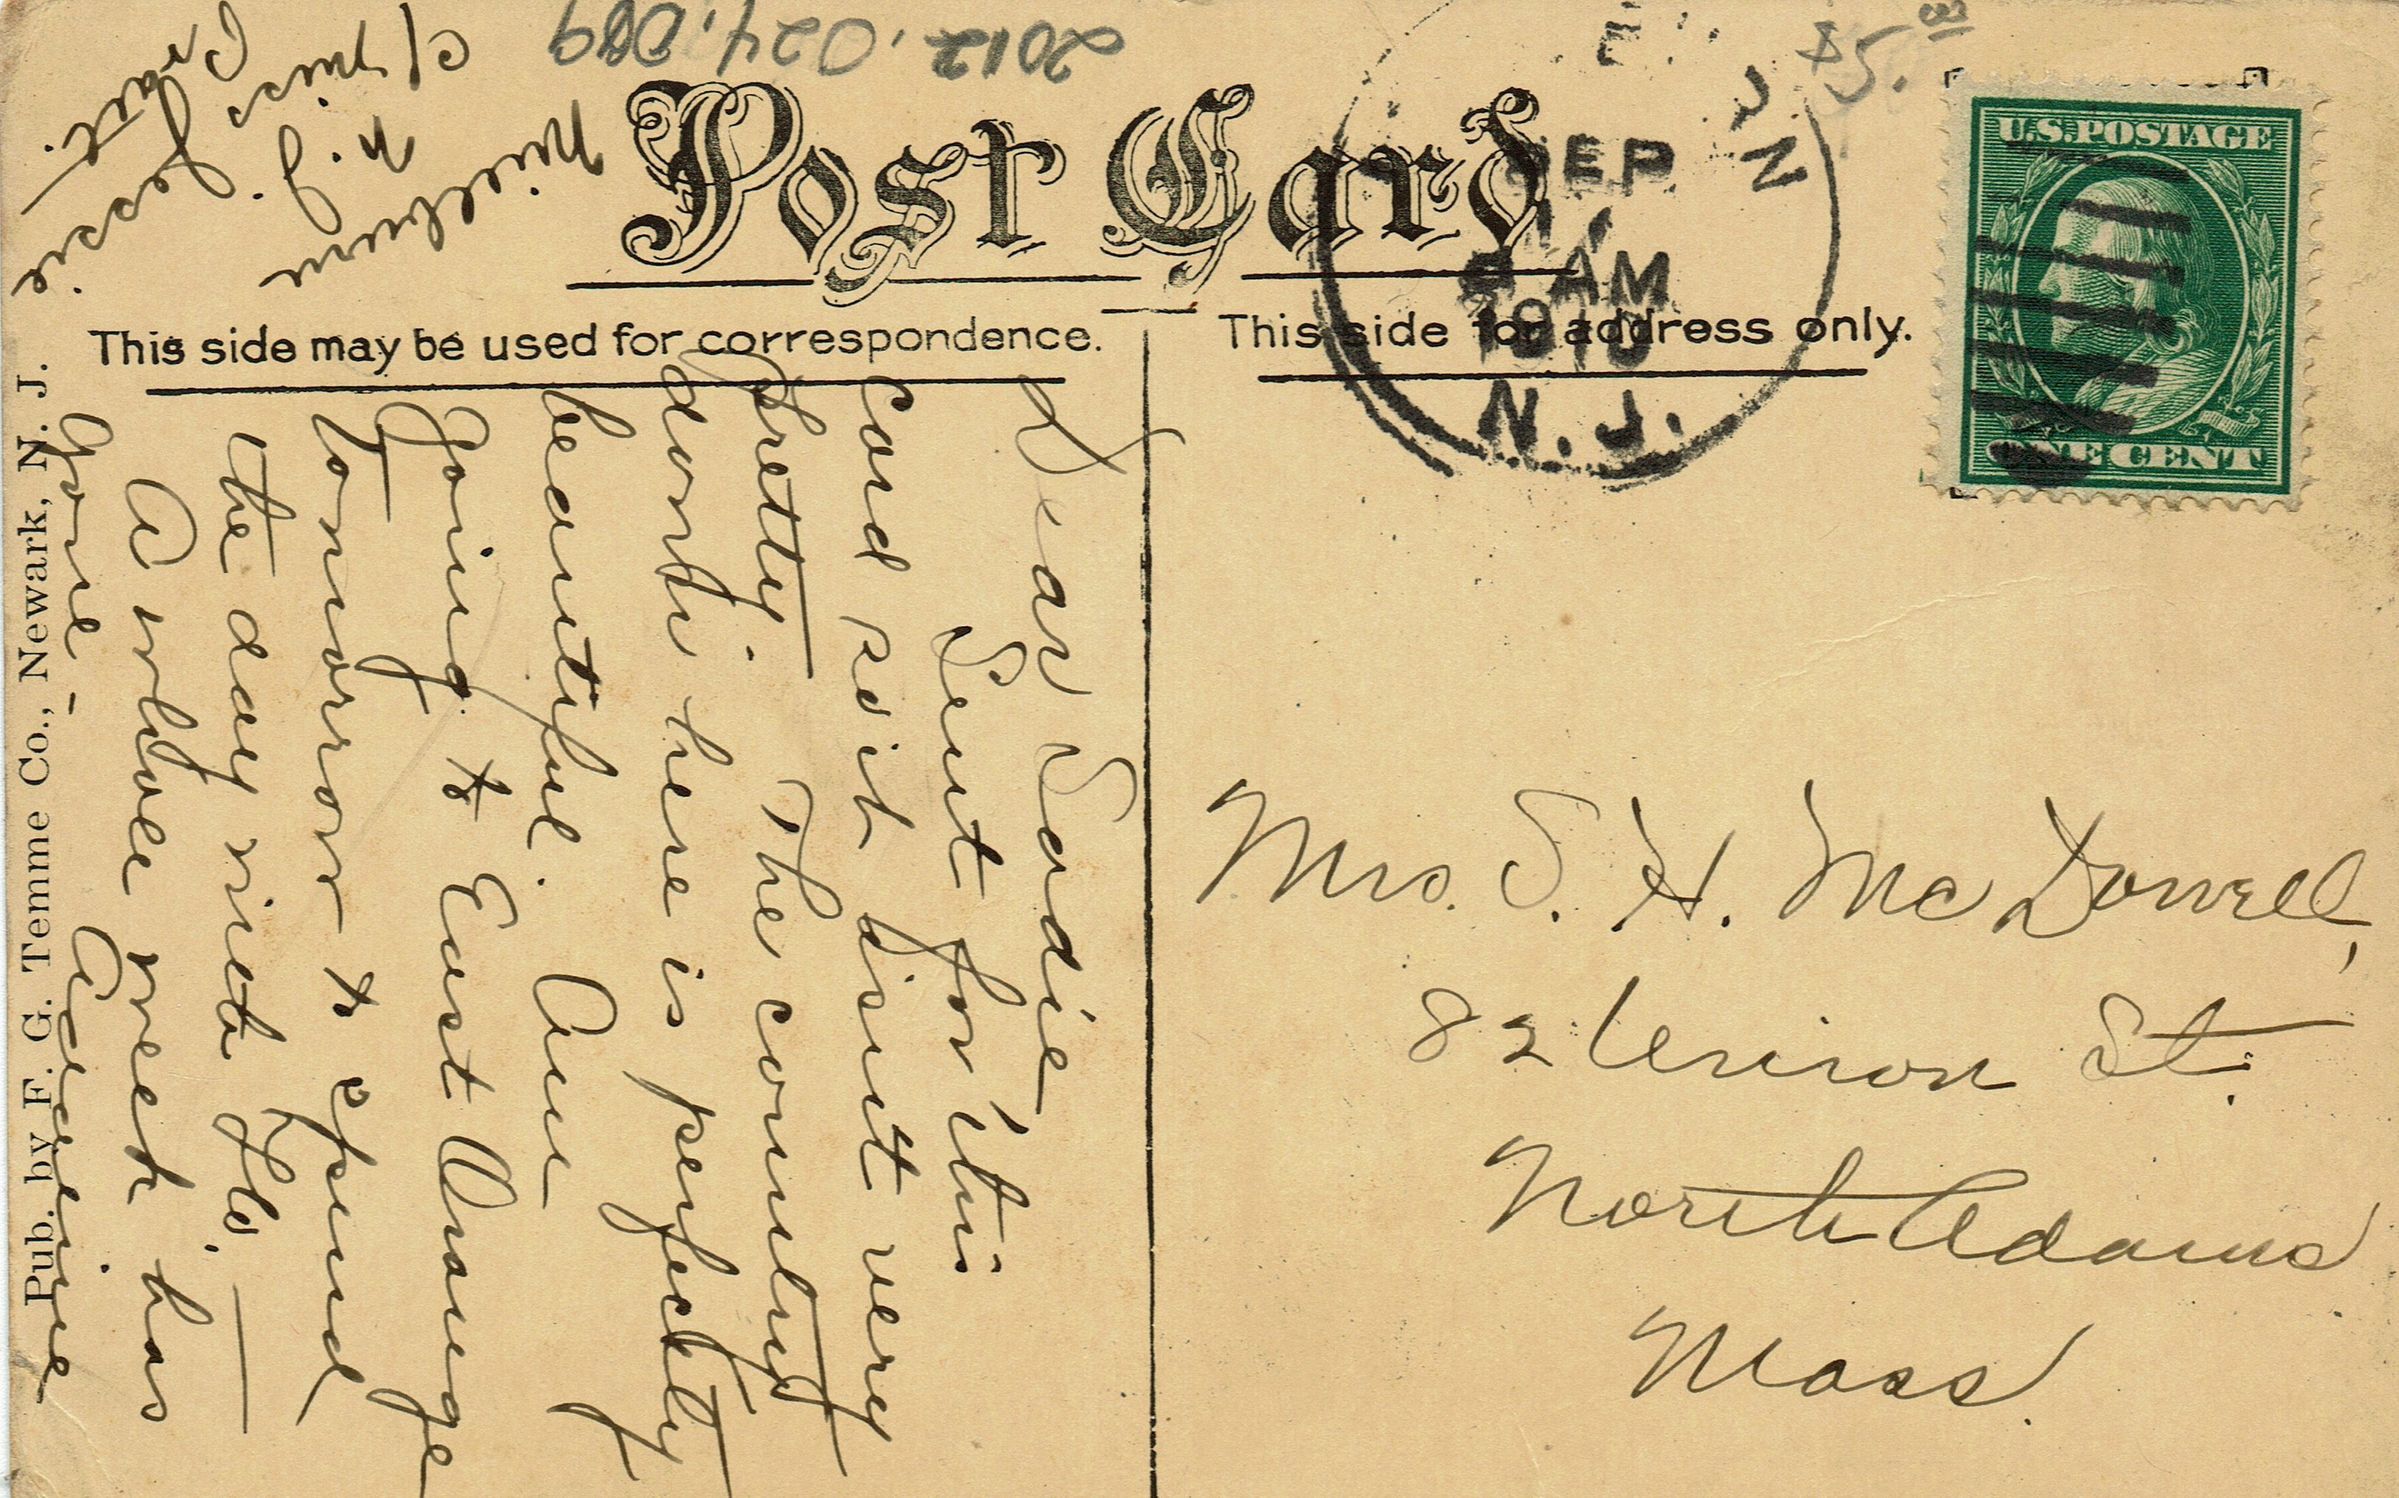 2012.024.069
$5.00
Post Card
This side may be used for correspondence.
This side for address only.
U.S. POSTAGE
ONE CENT
SEP
AM
1910
N. J.
Milburn
N. J.
c/ Miss Jessie
Pratt.
Dear Sadie
Sent for this
card. Isn't very
pretty. The country
down here is perfectly
beautiful. Am
going to East Orange
tomorrow to spend
the day with Flo. —
A whole week has
gone -
Pub. by F. G. Temme Co., Newark, N. J.
Mrs. S. H. McDowell,
82 Union St.
North Adams
Mass.